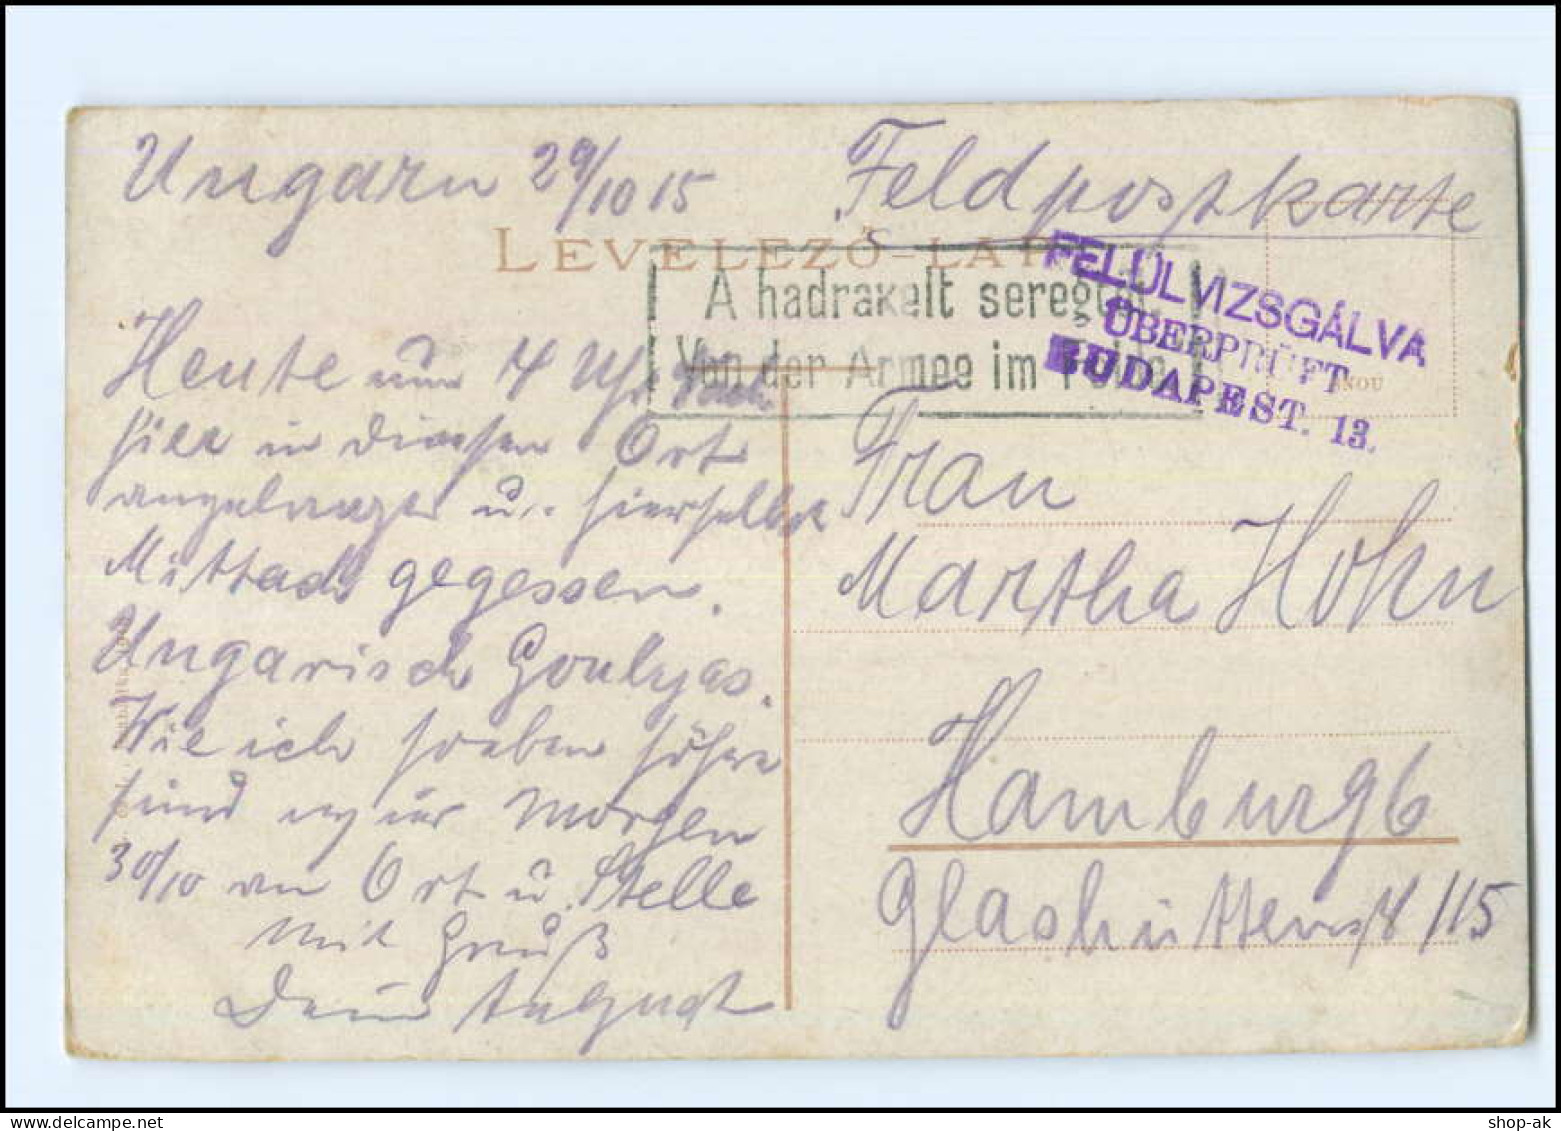 Ungarn 29/10 15
Feldpostkarte
LEVELEZŐ-LAP
A hadrakelt seregtől
Von der Armee im Felde
FELÜLVIZSGÁLVA
ÜBERPRÜFT
BUDAPEST. 13.
Heute um 4 Uhr
hier in diesen Ort
angelangt u. hierselbst
Mittach gegessen.
Ungarisch Goulyas.
Wie ich soeben höhre
sind wir Morgen
30/10 an Ort u. Stelle
Mit Gruß
Dein August
Frau
Martha Hohn
Hamburg 6
Glashüttenst 115
shop-ak
www.delcampe.net